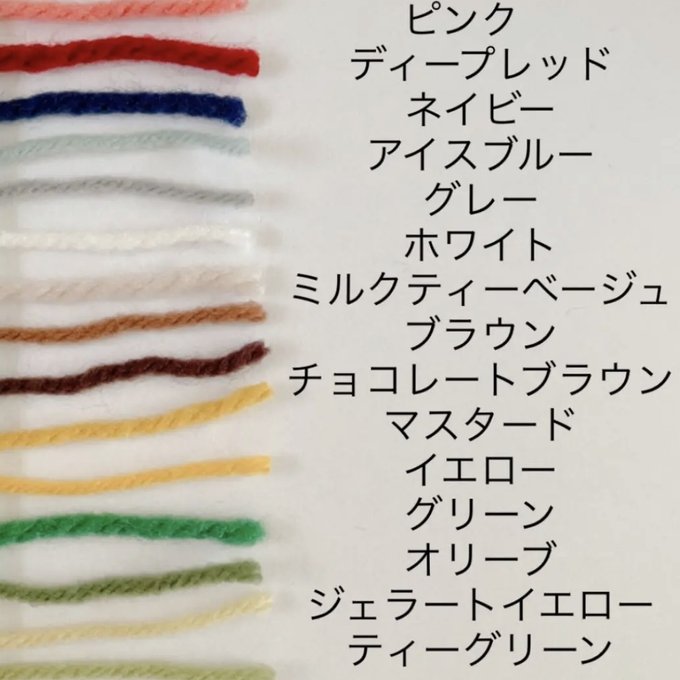 ピンク
ディープレッド
ネイビー
アイスブルー
グレー
ホワイト
ミルクティーベージュ
ブラウン
チョコレートブラウン
マスタード
イエロー
グリーン
オリーブ
ジェラートイエロー
ティーグリーン